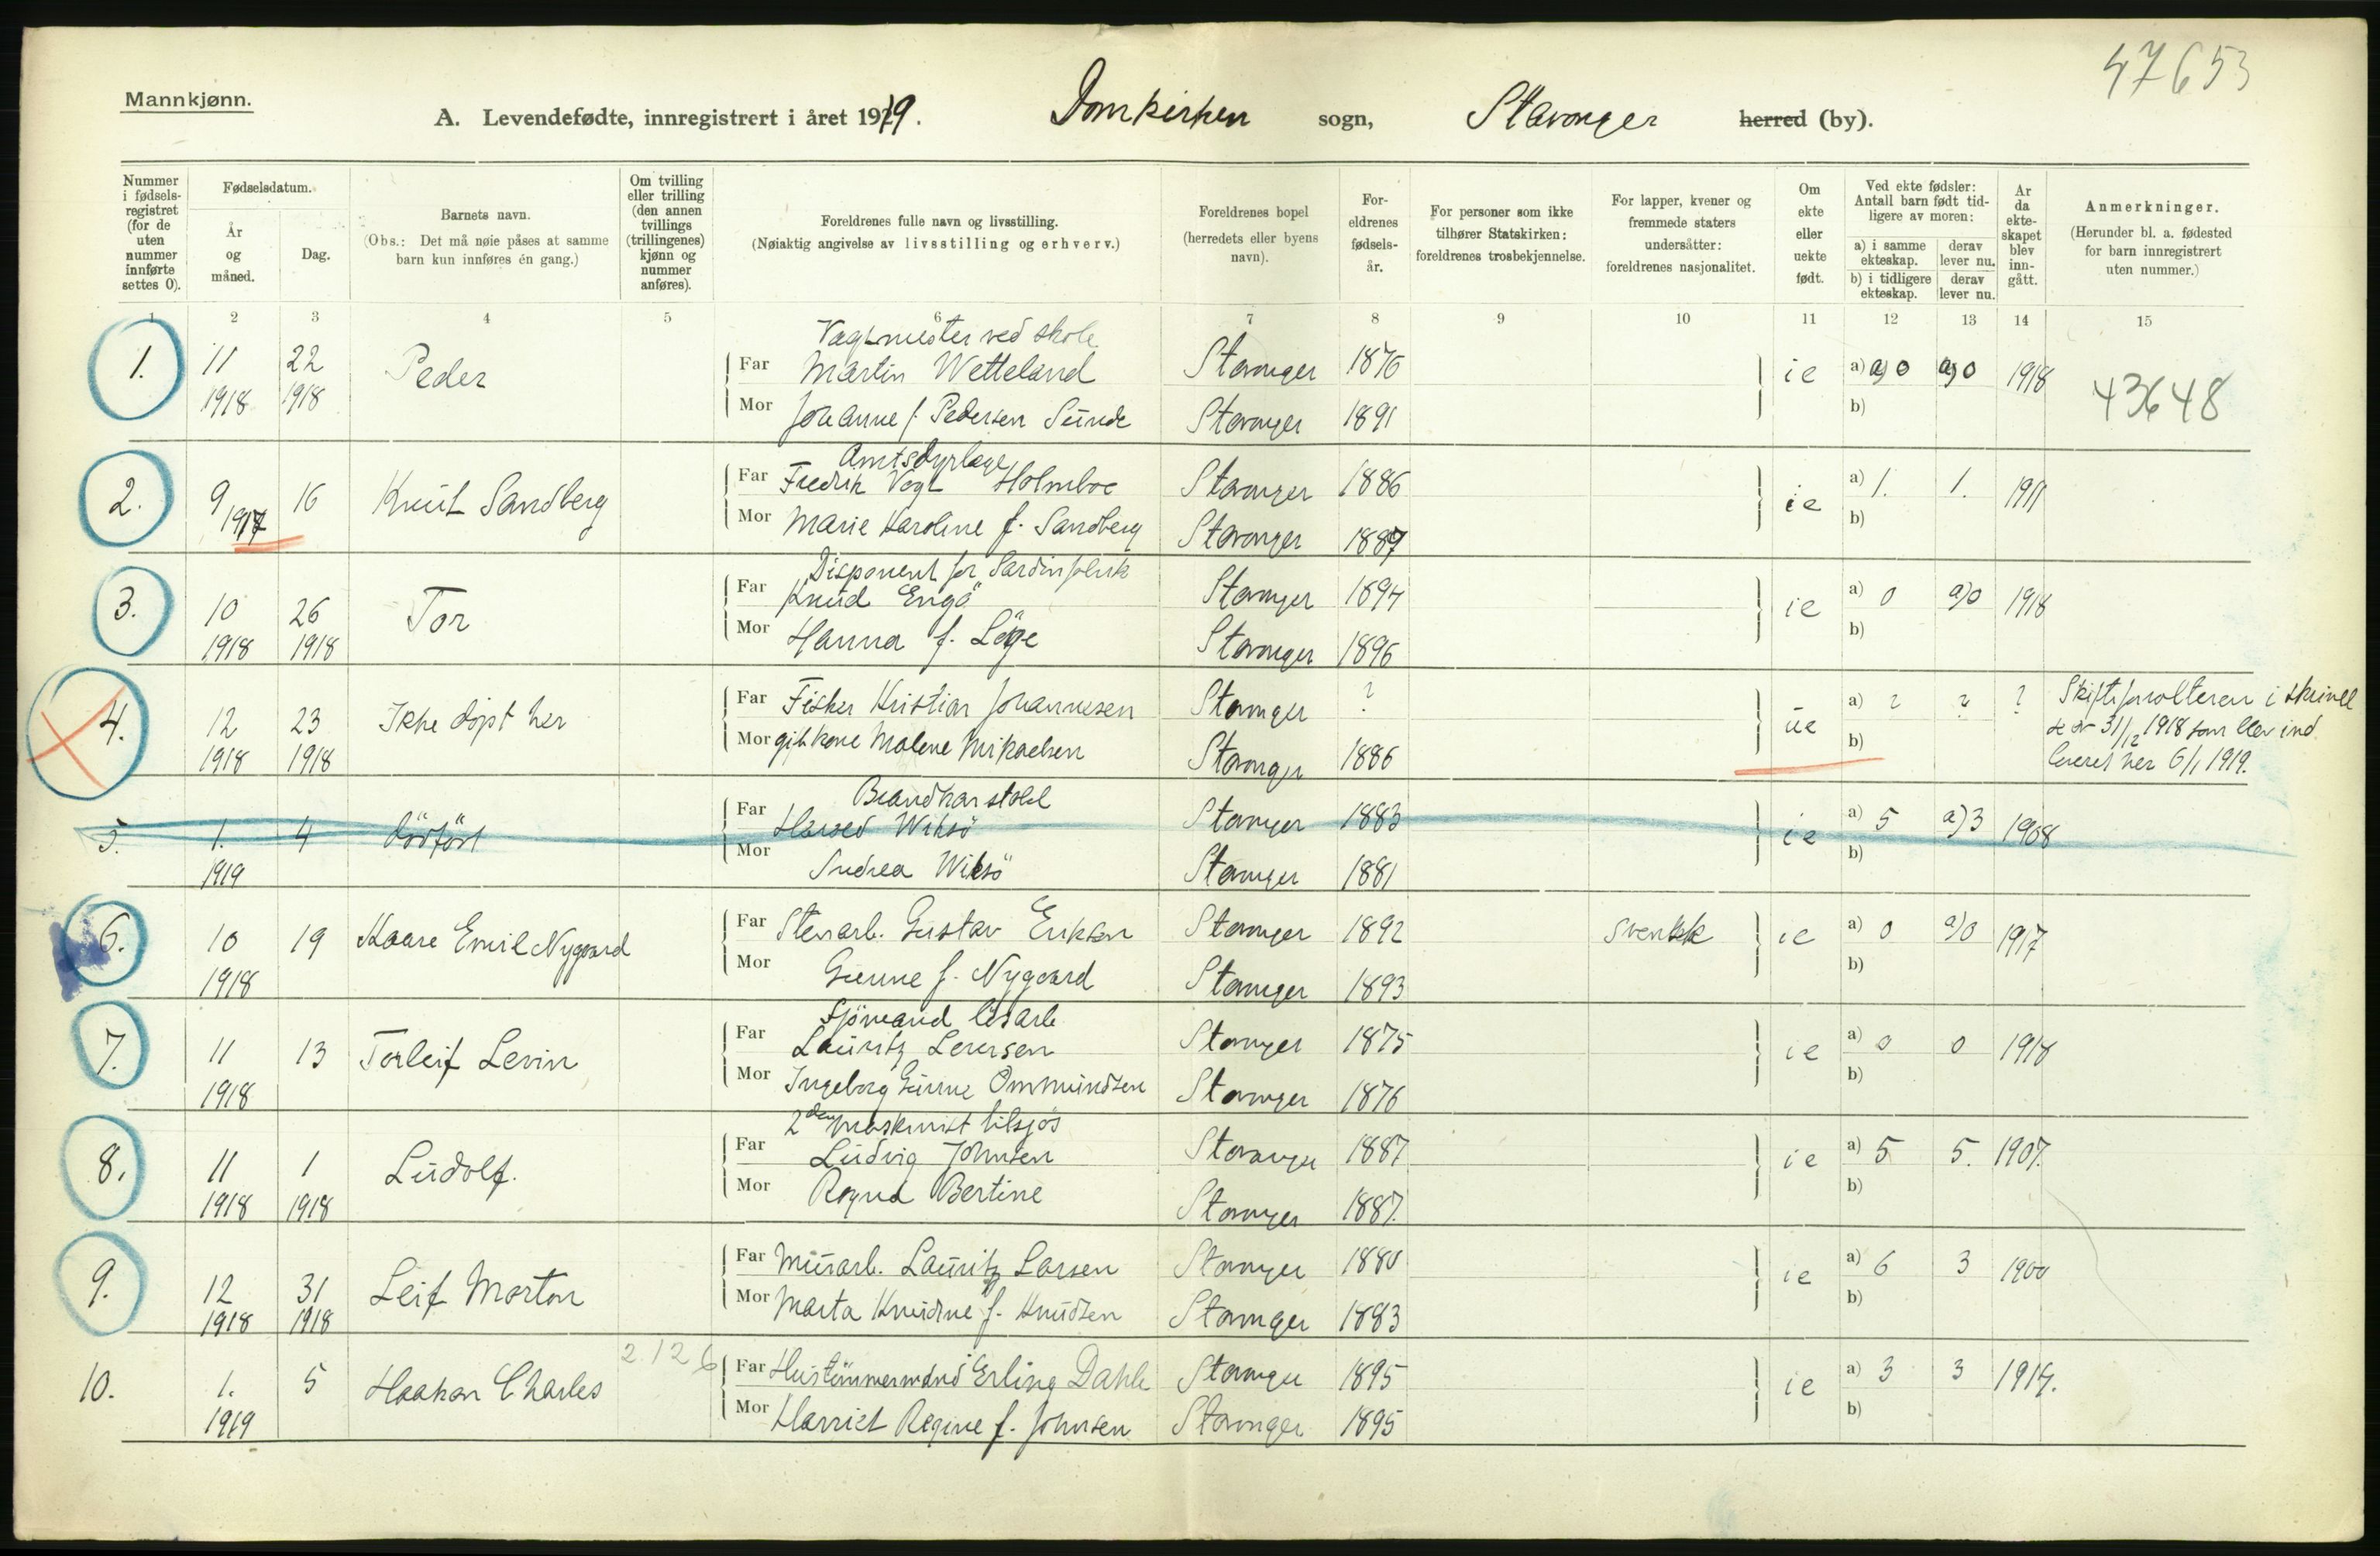 47653
Mannkjønn.
A. Levendefødte, innregistrert i året 1919. Domkirken sogn, Stavanger herred (by).
Nummer i fødselsregistret (for de uten nummer innførte settes 0).
Fødselsdatum.
År og måned.
Dag.
Barnets navn.
(Obs.: Det må nøie påses at samme barn kun innføres én gang.)
Om tvilling eller trilling (den annen tvillings (trillingenes) kjønn og nummer anføres).
Foreldrenes fulle navn og livsstilling.
(Nøiaktig angivelse av livsstilling og erhverv.)
Foreldrenes bopel (herredets eller byens navn).
Foreldrenes fødselsår.
For personer som ikke tilhører Statskirken: foreldrenes trosbekjennelse.
For lapper, kvener og fremmede staters undersåtter: foreldrenes nasjonalitet.
Om ekte eller uekte født.
Ved ekte fødsler: Antall barn født tidligere av moren:
a) i samme ekteskap. derav lever nu.
b) i tidligere ekteskap. derav lever nu.
Ar da ekteskapet blev inngått.
Anmerkninger.
(Herunder bl. a. fødested for barn innregistrert uten nummer.)
1 2 3 4 5 6 7 8 9 10 11 12 13 14 15
Vagtmester ved skole
1. 11 22 Peder Far Martin Wetteland Stavanger 1876 ie a) a) 0 a) 0 1918
1918 1918 Mor Johanne f. Pedersen Sunde Stavanger 1891 b) 43648
Amtsdyrlæge
2. 9 16 Knut Sandberg Far Fredrik Vogt Holmboe Stavanger 1886 ie a) 1. 1. 1911
1917 Mor Marie Karoline f. Sandberg Stavanger 1887 b)
Disponent for Sardinfabrik
3. 10 26 Tor Far Knud Engö Stavanger 1894 ie a) 0 a) 0 1918
1918 1918 Mor Hanna f. Stavanger 1896 b)
4. 12 23 Ikke döpt her Far Fisker Kristian Johannesen Stavanger ? ue a) ? ? ?
1918 1918 Mor gift kone Malene Mikaelsen Stavanger 1886 b)
i skrivel
31/12 1918 som blev ind
leveret her 6/1 1919.
5. 1. 4 dödfödt Far Wiksö Stavanger 1883 ie a) 5 a) 3 1908
1919 Mor Andrea Wiksö Stavanger 1881 b)
6. 10 19 Kaare Emil Nygaard Far Stenarb. Gustav Erikson Stavanger 1892 Svensk ie a) 0 a) 0 1917
1918 Mor Gunne f. Nygaard Stavanger 1893 b)
Sjömand lösarb
7. 11 13 Torleif Levin Far Lauritz Larsen Stavanger 1875 ie a) 0 0 1918
1918 Mor Ingeborg Gunne Ommundsen Stavanger 1876 b)
2den maskinist tilsjös
8. 11 1 Ludolf. Far Ludvig Johnsen Stavanger 1887 ie a) 5 5. 1907.
1918 1918 Mor Ragna Bertine Stavanger 1887. b)
9. 12 31 Leif Morton Far Murarb. Lauritz Larsen Stavanger 1880 ie a) 6 3 1900
1918 1918 Mor Marta Knudine f. Knudsen Stavanger 1883 b)
2126
10. 1. 5 Haakon Charles Far Hustömmermand Erling Dahle Stavanger 1895 ie a) 3 3 1914.
1919 Mor Harriet Regine f. Johnsen Stavanger 1895 b)